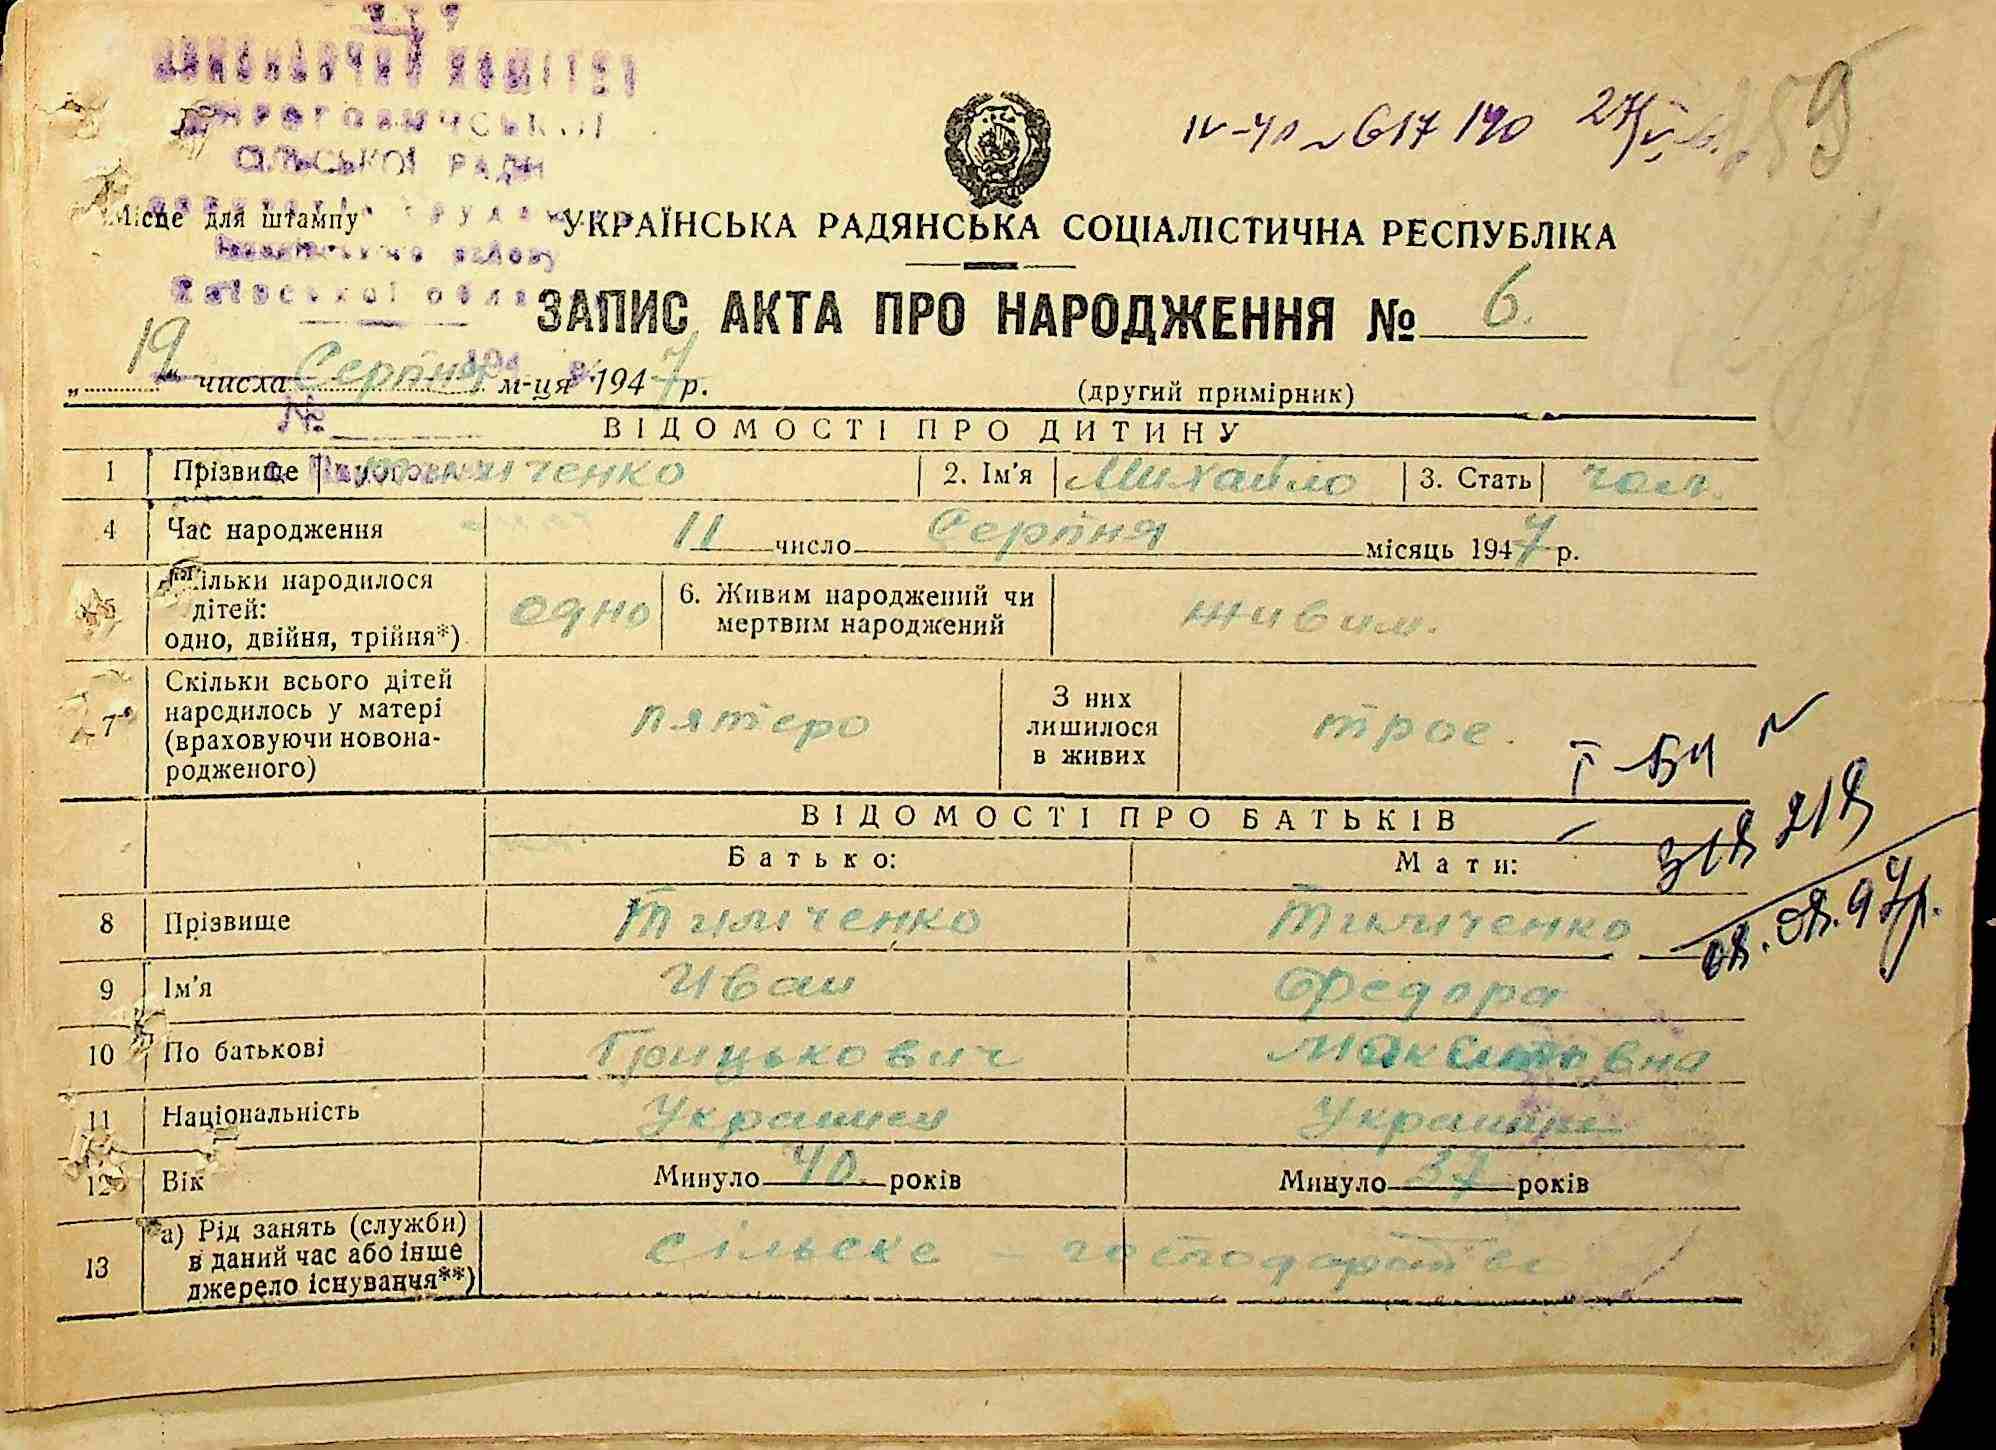 СІЛЬСЬКОЇ РАДИ
Місце для штампу
району
Київської
№
617 190
159
УКРАЇНСЬКА РАДЯНСЬКА СОЦІАЛІСТИЧНА РЕСПУБЛІКА
ЗАПИС АКТА ПРО НАРОДЖЕННЯ № 6.
„19" числа Серпня м-ця 1947 р.
(другий примірник)
ВІДОМОСТІ ПРО ДИТИНУ
1 Прізвище Тимченко 2. Ім'я Михайло 3. Стать чол.
4 Час народження 11 число Серпня місяць 1947 р.
5 Скільки народилося дітей: одно, двійня, трійня*) одно 6. Живим народжений чи мертвим народжений живим.
7 Скільки всього дітей народилось у матері (враховуючи новонародженого) пятеро З них лишилося в живих троє.
318218
08.08.97р.
ВІДОМОСТІ ПРО БАТЬКІВ
Батько: Мати:
8 Прізвище Тимченко Тимченко
9 Ім'я Иван Федора
10 По батькові Грицькович Максимовна
11 Національність Украинец Украинка
12 Вік Минуло 40 років Минуло 37 років
13 а) Рід занять (служби) в даний час або інше джерело існування**) сільске - господарство